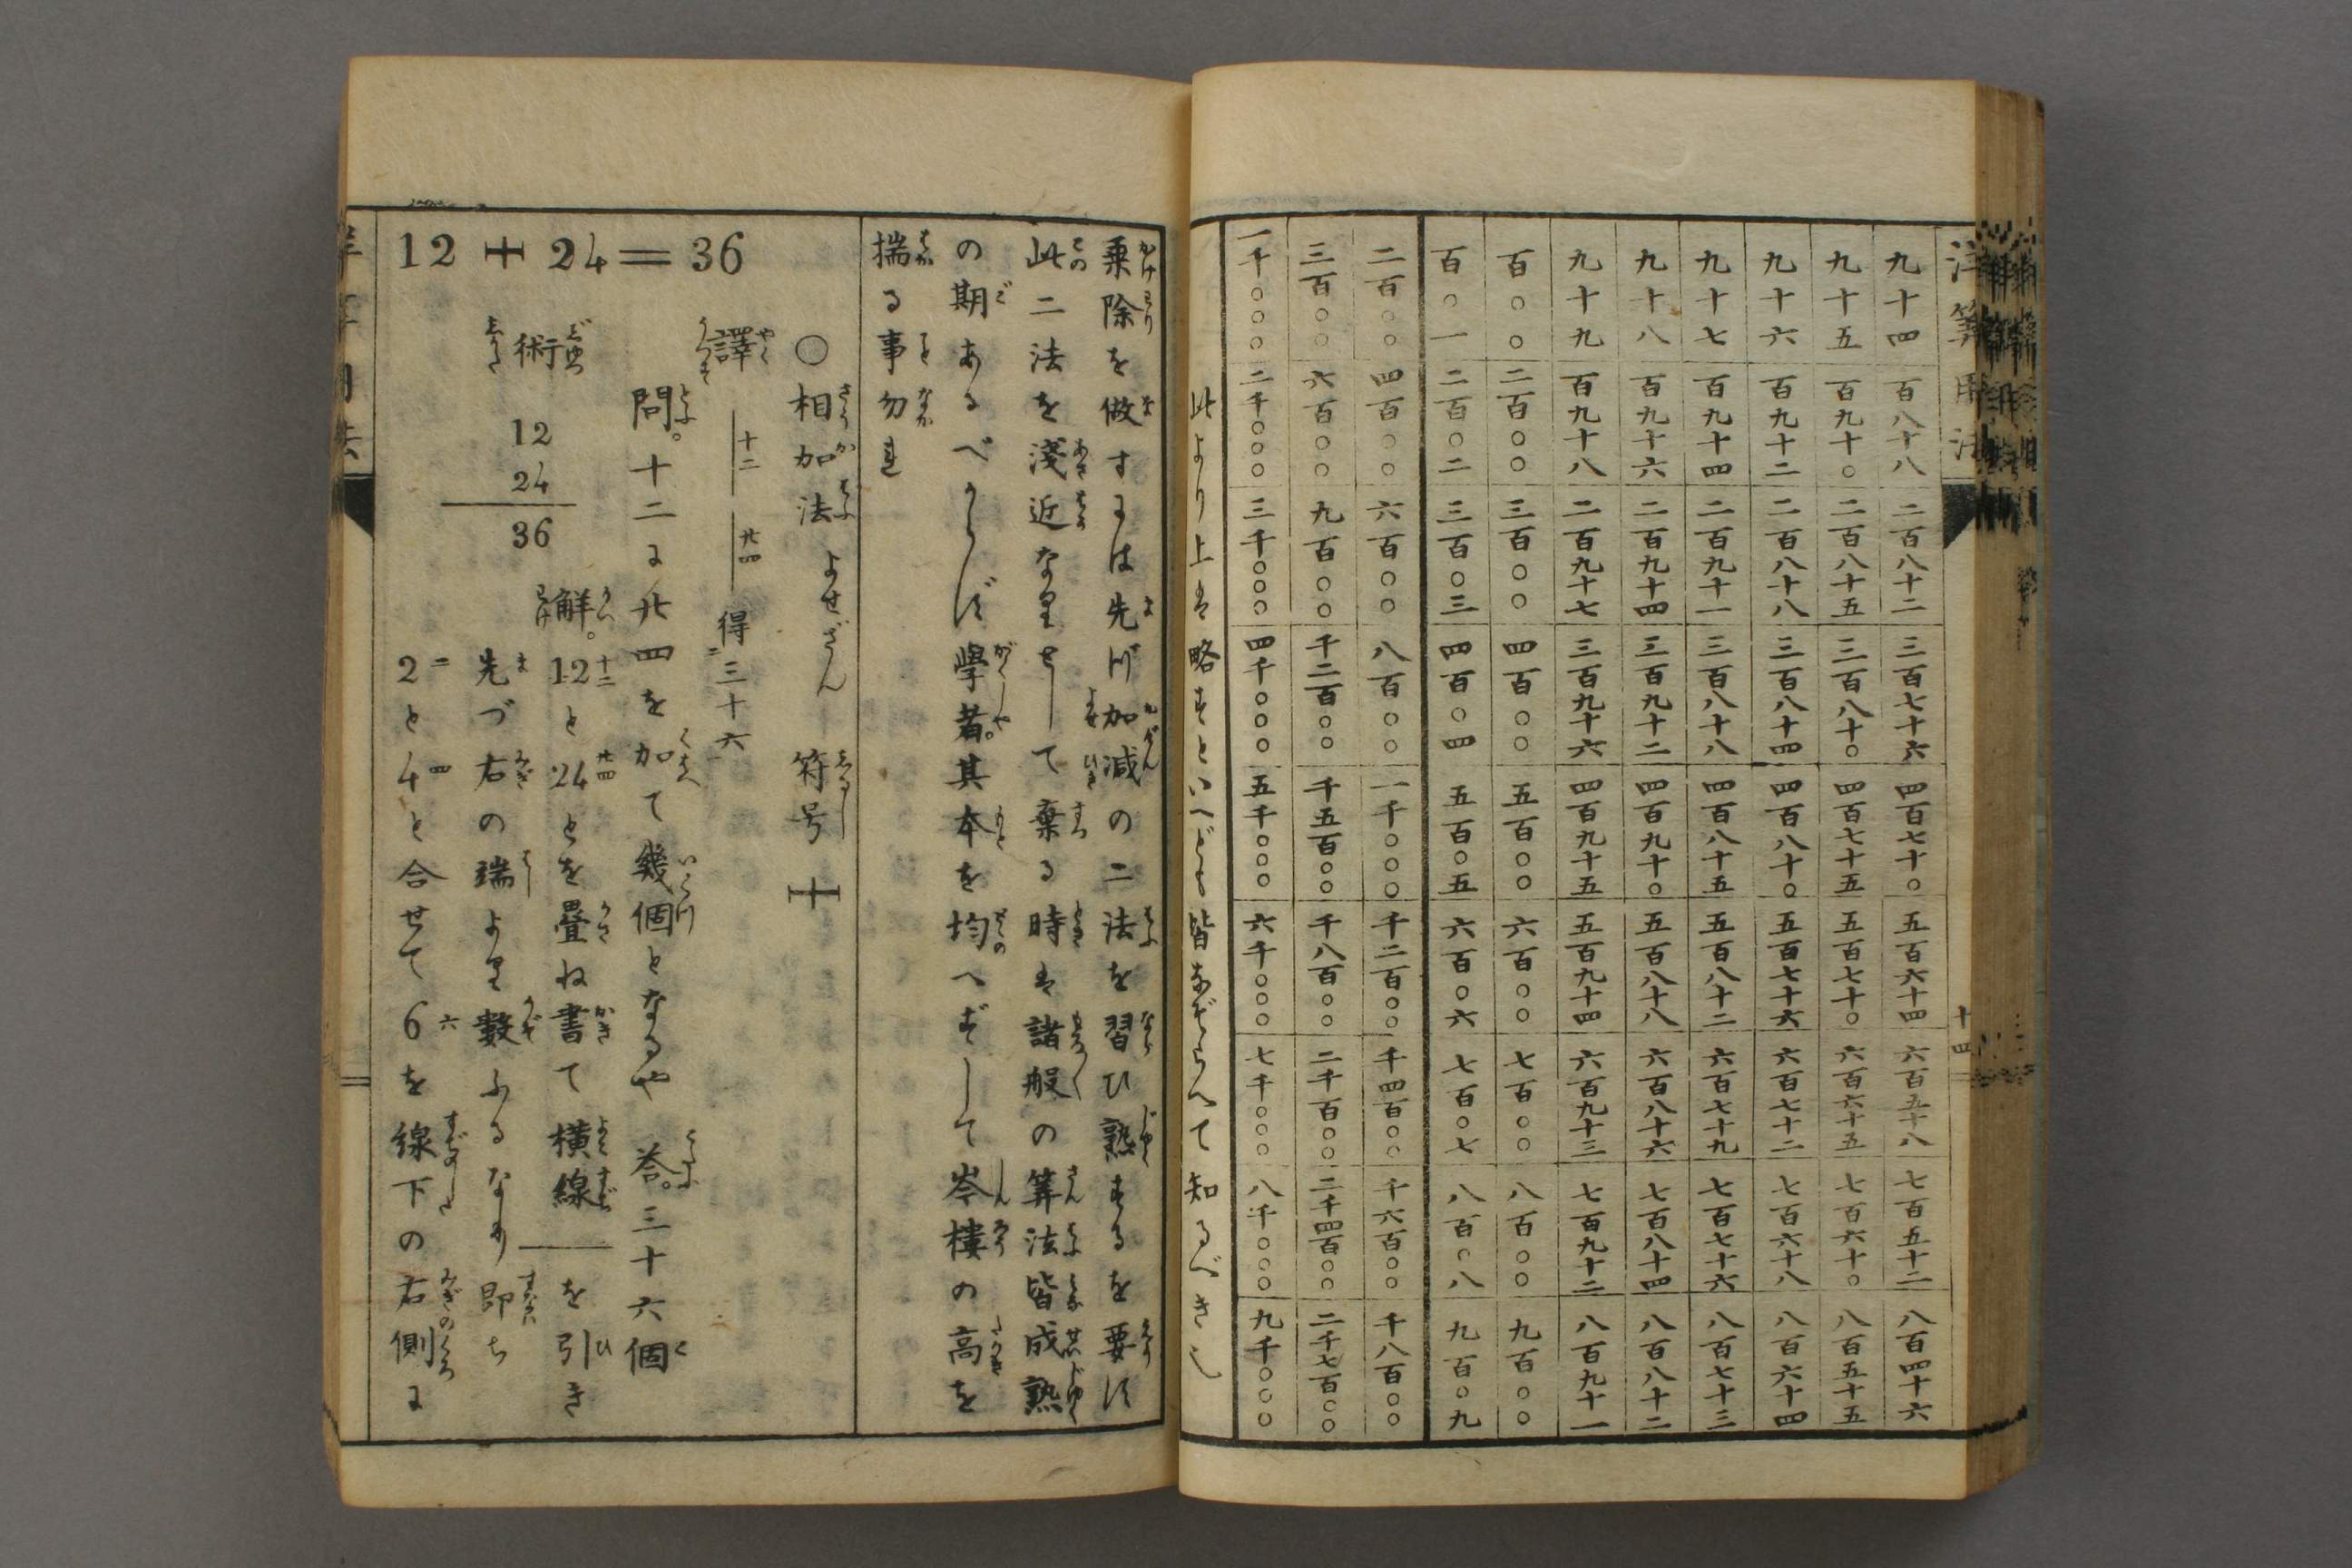 洋算用法
十四
九十四 百八十八 二百八十二 三百七十六 四百七十○ 五百六十四 六百五十八 七百五十二 八百四十六
九十五 百九十○ 二百八十五 三百八十○ 四百七十五 五百七十○ 六百六十五 七百六十○ 八百五十五
九十六 百九十二 二百八十八 三百八十四 四百八十○ 五百七十六 六百七十二 七百六十八 八百六十四
九十七 百九十四 二百九十一 三百八十八 四百八十五 五百八十二 六百七十九 七百七十六 八百七十三
九十八 百九十六 二百九十四 三百九十二 四百九十○ 五百八十八 六百八十六 七百八十四 八百八十二
九十九 百九十八 二百九十七 三百九十六 四百九十五 五百九十四 六百九十三 七百九十二 八百九十一
百○○ 二百○○ 三百○○ 四百○○ 五百○○ 六百○○ 七百○○ 八百○○ 九百○○
百○一 二百○二 三百○三 四百○四 五百○五 六百○六 七百○七 八百○八 九百○九
二百○○ 四百○○ 六百○○ 八百○○ 一千○○○ 千二百○○ 千四百○○ 千六百○○ 千八百○○
三百○○ 六百○○ 九百○○ 千二百○○ 千五百○○ 千八百○○ 二千百○○ 二千四百○○ 二千七百○○
一千○○○ 二千○○○ 三千○○○ 四千○○○ 五千○○○ 六千○○○ 七千○○○ 八千○○○ 九千○○○
此より上は略すといへども皆なぞらへて知るべき也
乗除を做すには先づ加減の二法を習ひ熟するを要す
此二法を淺近なりとして棄る時は諸般の筭法皆成熟
の期あるべからず學者。其本を均へずして岑樓の高を
揣る事勿れ
○相加法 よせざん 符号 十
譯 十二 廿四 得三十六
12 + 24 = 36
問。十二に廿四を加て幾個となるや 荅。三十六個
術
12
24
36
解。12と24とを疊ね書て横線 を引き
先づ右の端より數ふるなり即ち
2と4と合せて6を線下の右側に